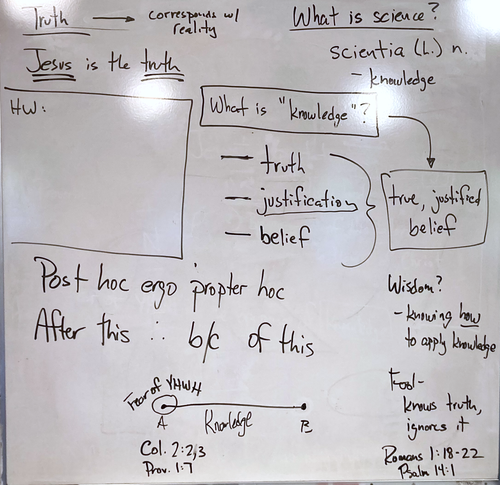 Truth → corresponds w/
reality
Jesus is the truth
What is science?
scientia (L.) n.
- knowledge
HW:
What is "knowledge"?
- truth
- justification
- belief
true, justified
belief
Post hoc ergo propter hoc
After this ∴ b/c of this
Wisdom?
- knowing how
to apply knowledge
Fool-
knows truth,
ignores it
Romans 1:18-22
Psalm 14:1
Fear of YHWH
A Knowledge B
Col. 2:2,3
Prov. 1:7